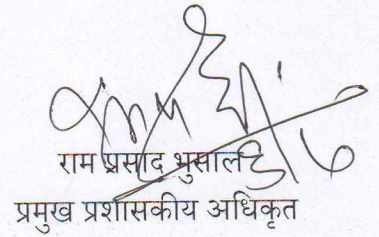 राम प्रसाद भुसाल
प्रमुख प्रशासकीय अधिकृत